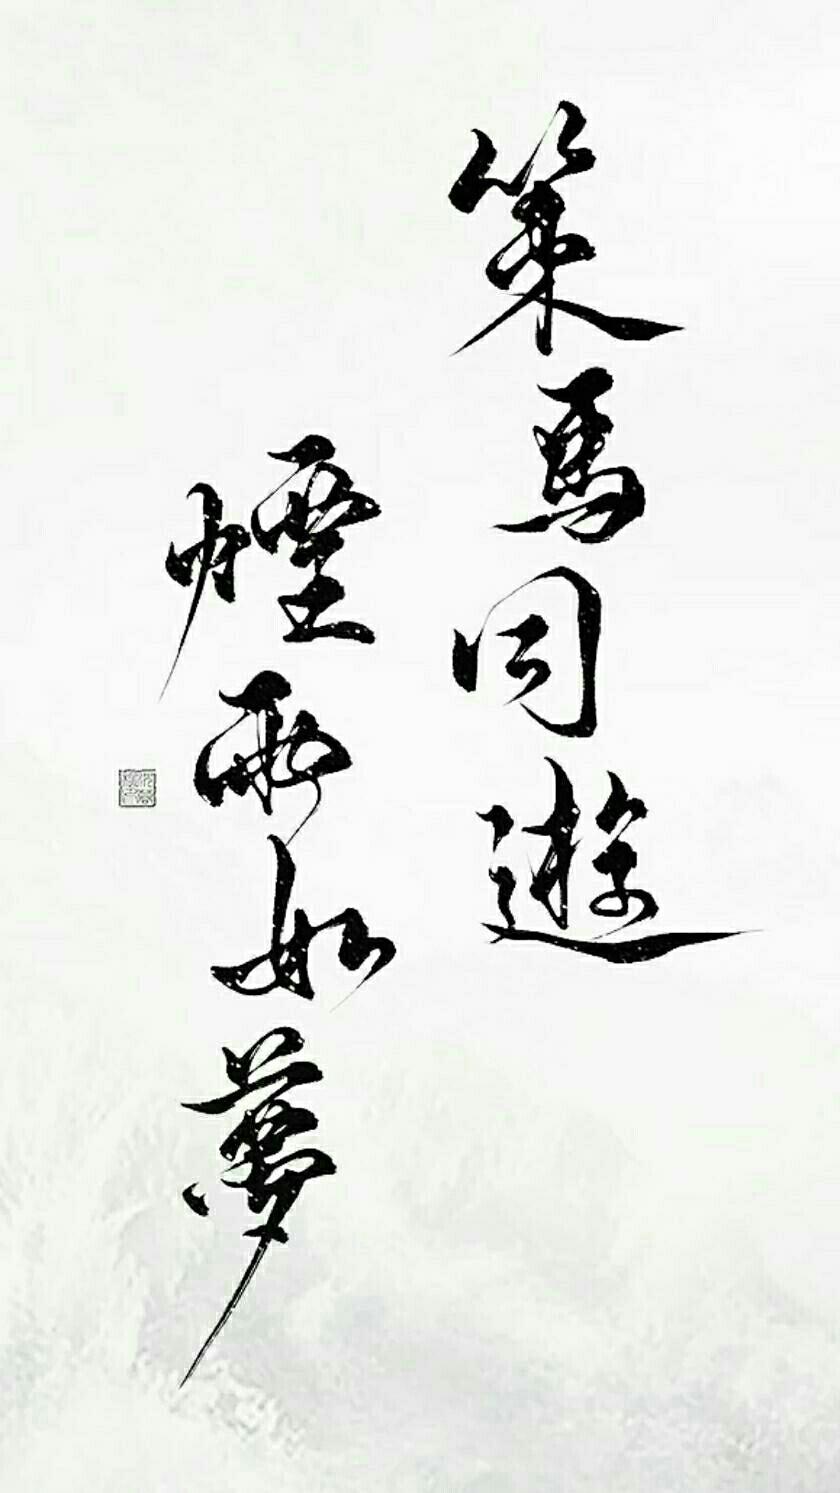 策馬同遊
煙雨如夢